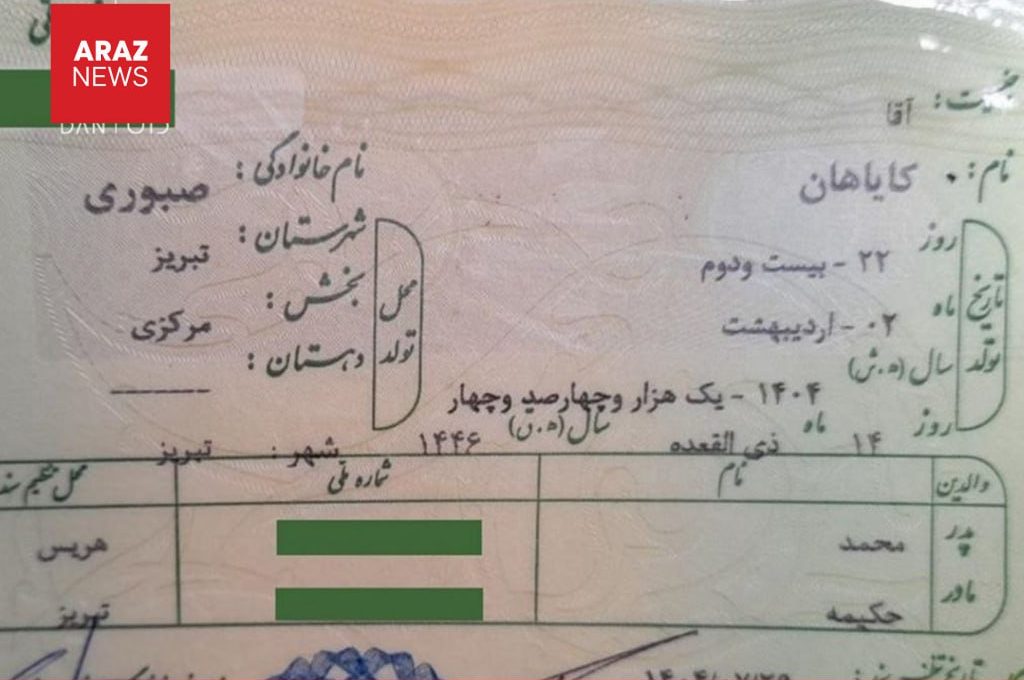 ARAZ
NEWS
جنسیت: آقا
نام: کایاهان
نام خانوادگی: صبوری
تاریخ تولد
روز ۲۲ - بیست ودوم
ماه ۰۲ - اردیبهشت
سال (ه.ش) ۱۴۰۴ - یک هزار وچهارصد وچهار
روز ۱۴ ماه ذی القعده سال (ه.ق) ۱۴۴۶
محل تولد
شهرستان: تبریز
بخش: مرکزی
دهستان: ـــــــــ
شهر: تبریز
والدین نام شماره ملی محل تنظیم
پدر محمد هریس
مادر حکیمه تبریز